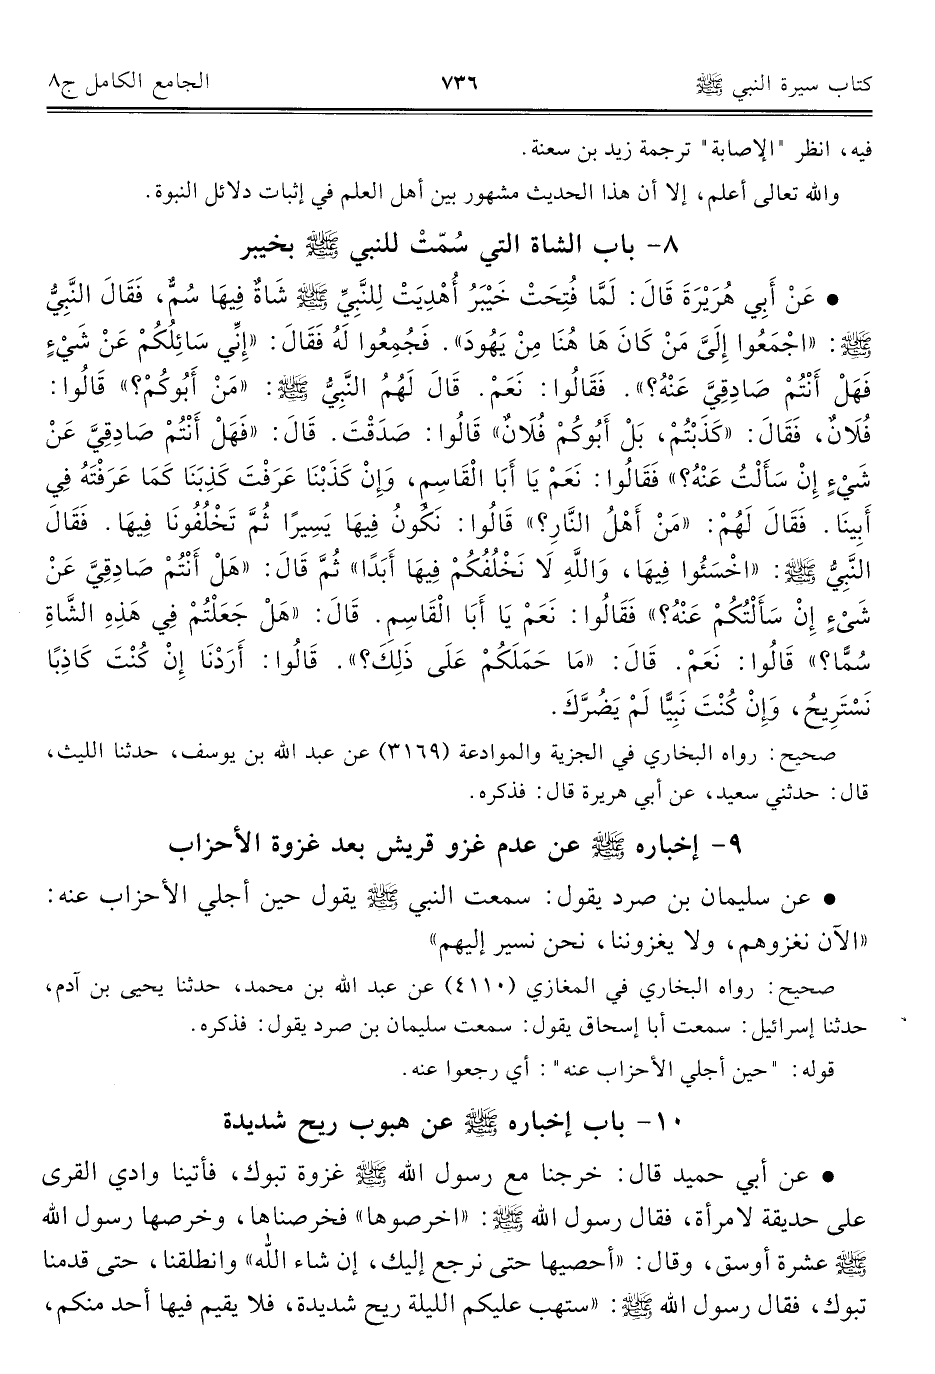 كتاب سيرة النبي ﷺ ٧٣٦ الجامع الكامل ج٨
فيه، انظر "الإصابة" ترجمة زيد بن سعنة.
والله تعالى أعلم، إلا أن هذا الحديث مشهور بين أهل العلم في إثبات دلائل النبوة.
٨- باب الشاة التي سُمّتْ للنبي ﷺ بخيبر
• عَنْ أَبِي هُرَيْرَةَ قَالَ: لَمَّا فُتِحَتْ خَيْبَرُ أُهْدِيَتْ لِلنَّبِيِّ ﷺ شَاةٌ فِيهَا سُمٌّ، فَقَالَ النَّبِيُّ
ﷺ: «اجْمَعُوا إِلَيَّ مَنْ كَانَ هَا هُنَا مِنْ يَهُودَ». فَجُمِعُوا لَهُ فَقَالَ: «إِنِّي سَائِلُكُمْ عَنْ شَيْءٍ
فَهَلْ أَنْتُمْ صَادِقِيَّ عَنْهُ؟». فَقَالُوا: نَعَمْ. قَالَ لَهُمُ النَّبِيُّ ﷺ: «مَنْ أَبُوكُمْ؟» قَالُوا:
فُلَانٌ، فَقَالَ: «كَذَبْتُمْ، بَلْ أَبُوكُمْ فُلَانٌ» قَالُوا: صَدَقْتَ. قَالَ: «فَهَلْ أَنْتُمْ صَادِقِيَّ عَنْ
شَيْءٍ إِنْ سَأَلْتُ عَنْهُ؟» فَقَالُوا: نَعَمْ يَا أَبَا الْقَاسِمِ، وَإِنْ كَذَبْنَا عَرَفْتَ كَذِبَنَا كَمَا عَرَفْتَهُ فِي
أَبِينَا. فَقَالَ لَهُمْ: «مَنْ أَهْلُ النَّارِ؟» قَالُوا: نَكُونُ فِيهَا يَسِيرًا ثُمَّ تَخْلُفُونَا فِيهَا. فَقَالَ
النَّبِيُّ ﷺ: «اخْسَئُوا فِيهَا، وَاللَّهِ لَا نَخْلُفُكُمْ فِيهَا أَبَدًا» ثُمَّ قَالَ: «هَلْ أَنْتُمْ صَادِقِيَّ عَنْ
شَيْءٍ إِنْ سَأَلْتُكُمْ عَنْهُ؟» فَقَالُوا: نَعَمْ يَا أَبَا الْقَاسِمِ. قَالَ: «هَلْ جَعَلْتُمْ فِي هَذِهِ الشَّاةِ
سُمًّا؟» قَالُوا: نَعَمْ. قَالَ: «مَا حَمَلَكُمْ عَلَى ذَلِكَ؟». قَالُوا: أَرَدْنَا إِنْ كُنْتَ كَاذِبًا
نَسْتَرِيحُ، وَإِنْ كُنْتَ نَبِيًّا لَمْ يَضُرَّكَ.
صحيح: رواه البخاري في الجزية والموادعة (٣١٦٩) عن عبد الله بن يوسف، حدثنا الليث،
قال: حدثني سعيد، عن أبي هريرة قال: فذكره.
٩- إخباره ﷺ عن عدم غزو قريش بعد غزوة الأحزاب
• عن سليمان بن صرد يقول: سمعت النبي ﷺ يقول حين أجلي الأحزاب عنه:
«الآن نغزوهم، ولا يغزوننا، نحن نسير إليهم»
صحيح: رواه البخاري في المغازي (٤١١٠) عن عبد الله بن محمد، حدثنا يحيى بن آدم،
حدثنا إسرائيل: سمعت أبا إسحاق يقول: سمعت سليمان بن صرد يقول: فذكره.
قوله: "حين أجلي الأحزاب عنه": أي رجعوا عنه.
١٠- باب إخباره ﷺ عن هبوب ريح شديدة
• عن أبي حميد قال: خرجنا مع رسول الله ﷺ غزوة تبوك، فأتينا وادي القرى
على حديقة لامرأة، فقال رسول الله ﷺ: «اخرصوها» فخرصناها، وخرصها رسول الله
ﷺ عشرة أوسق، وقال: «أحصيها حتى نرجع إليك، إن شاء اللّه» وانطلقنا، حتى قدمنا
تبوك، فقال رسول الله ﷺ: «ستهب عليكم الليلة ريح شديدة، فلا يقيم فيها أحد منكم،